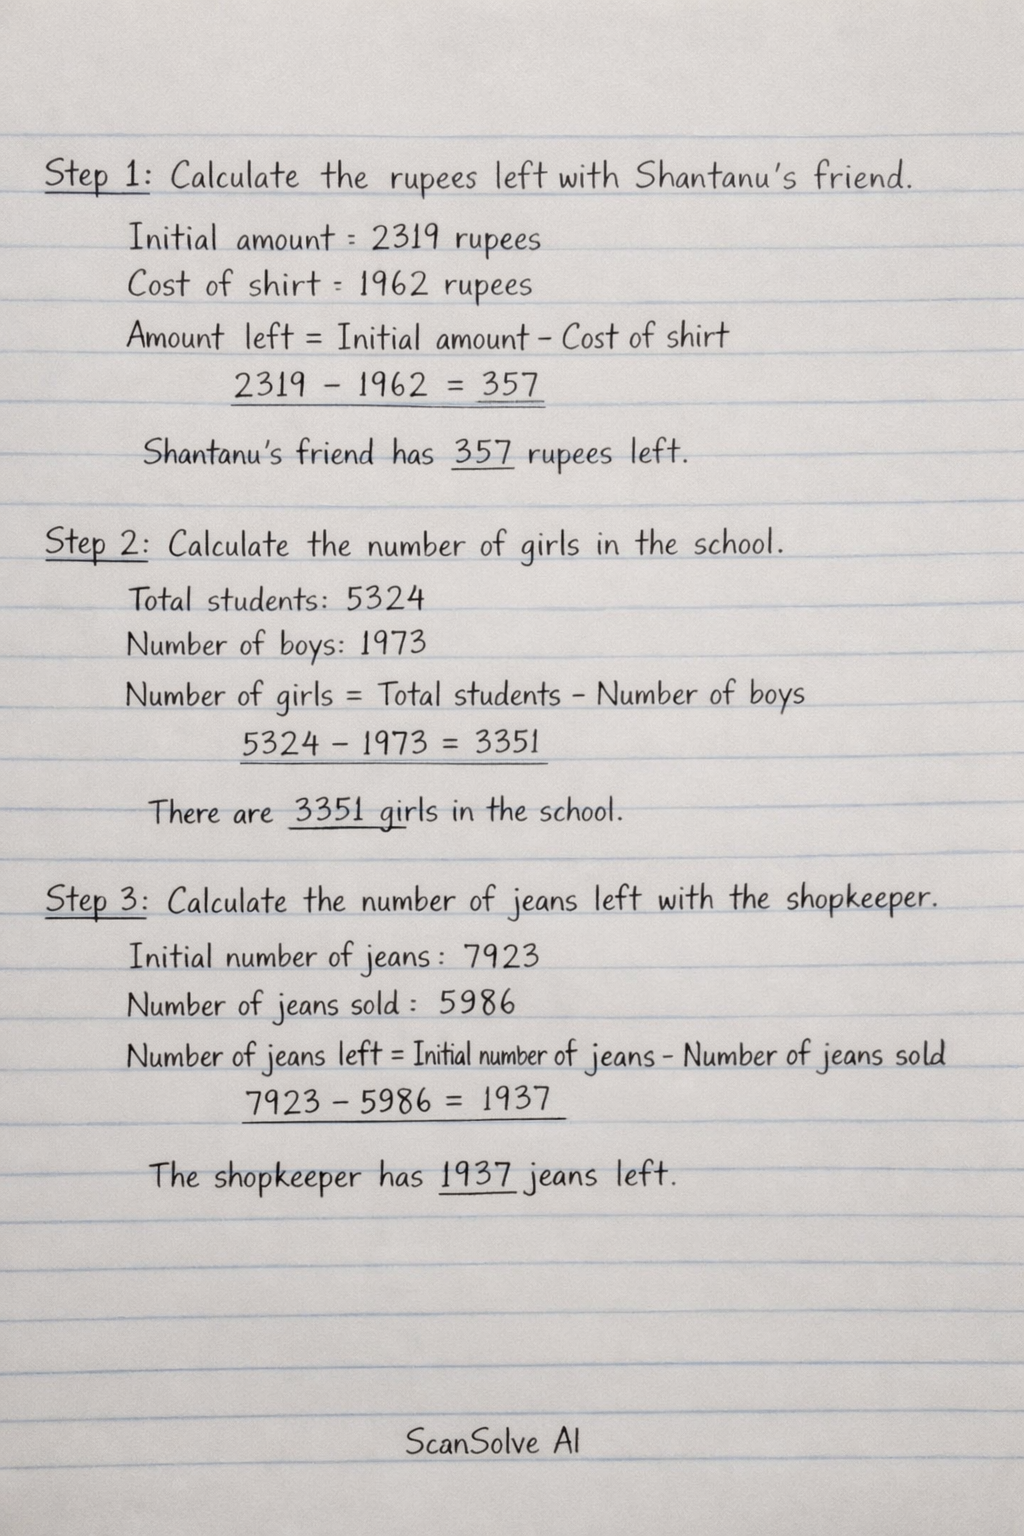 Step 1: Calculate the rupees left with Shantanu's friend.
Initial amount = 2319 rupees
Cost of shirt = 1962 rupees
Amount left = Initial amount - Cost of shirt
2319 - 1962 = 357
Shantanu's friend has 357 rupees left.
Step 2: Calculate the number of girls in the school.
Total students: 5324
Number of boys: 1973
Number of girls = Total students - Number of boys
5324 - 1973 = 3351
There are 3351 girls in the school.
Step 3: Calculate the number of jeans left with the shopkeeper.
Initial number of jeans: 7923
Number of jeans sold: 5986
Number of jeans left = Initial number of jeans - Number of jeans sold
7923 - 5986 = 1937
The shopkeeper has 1937 jeans left.
ScanSolve AI